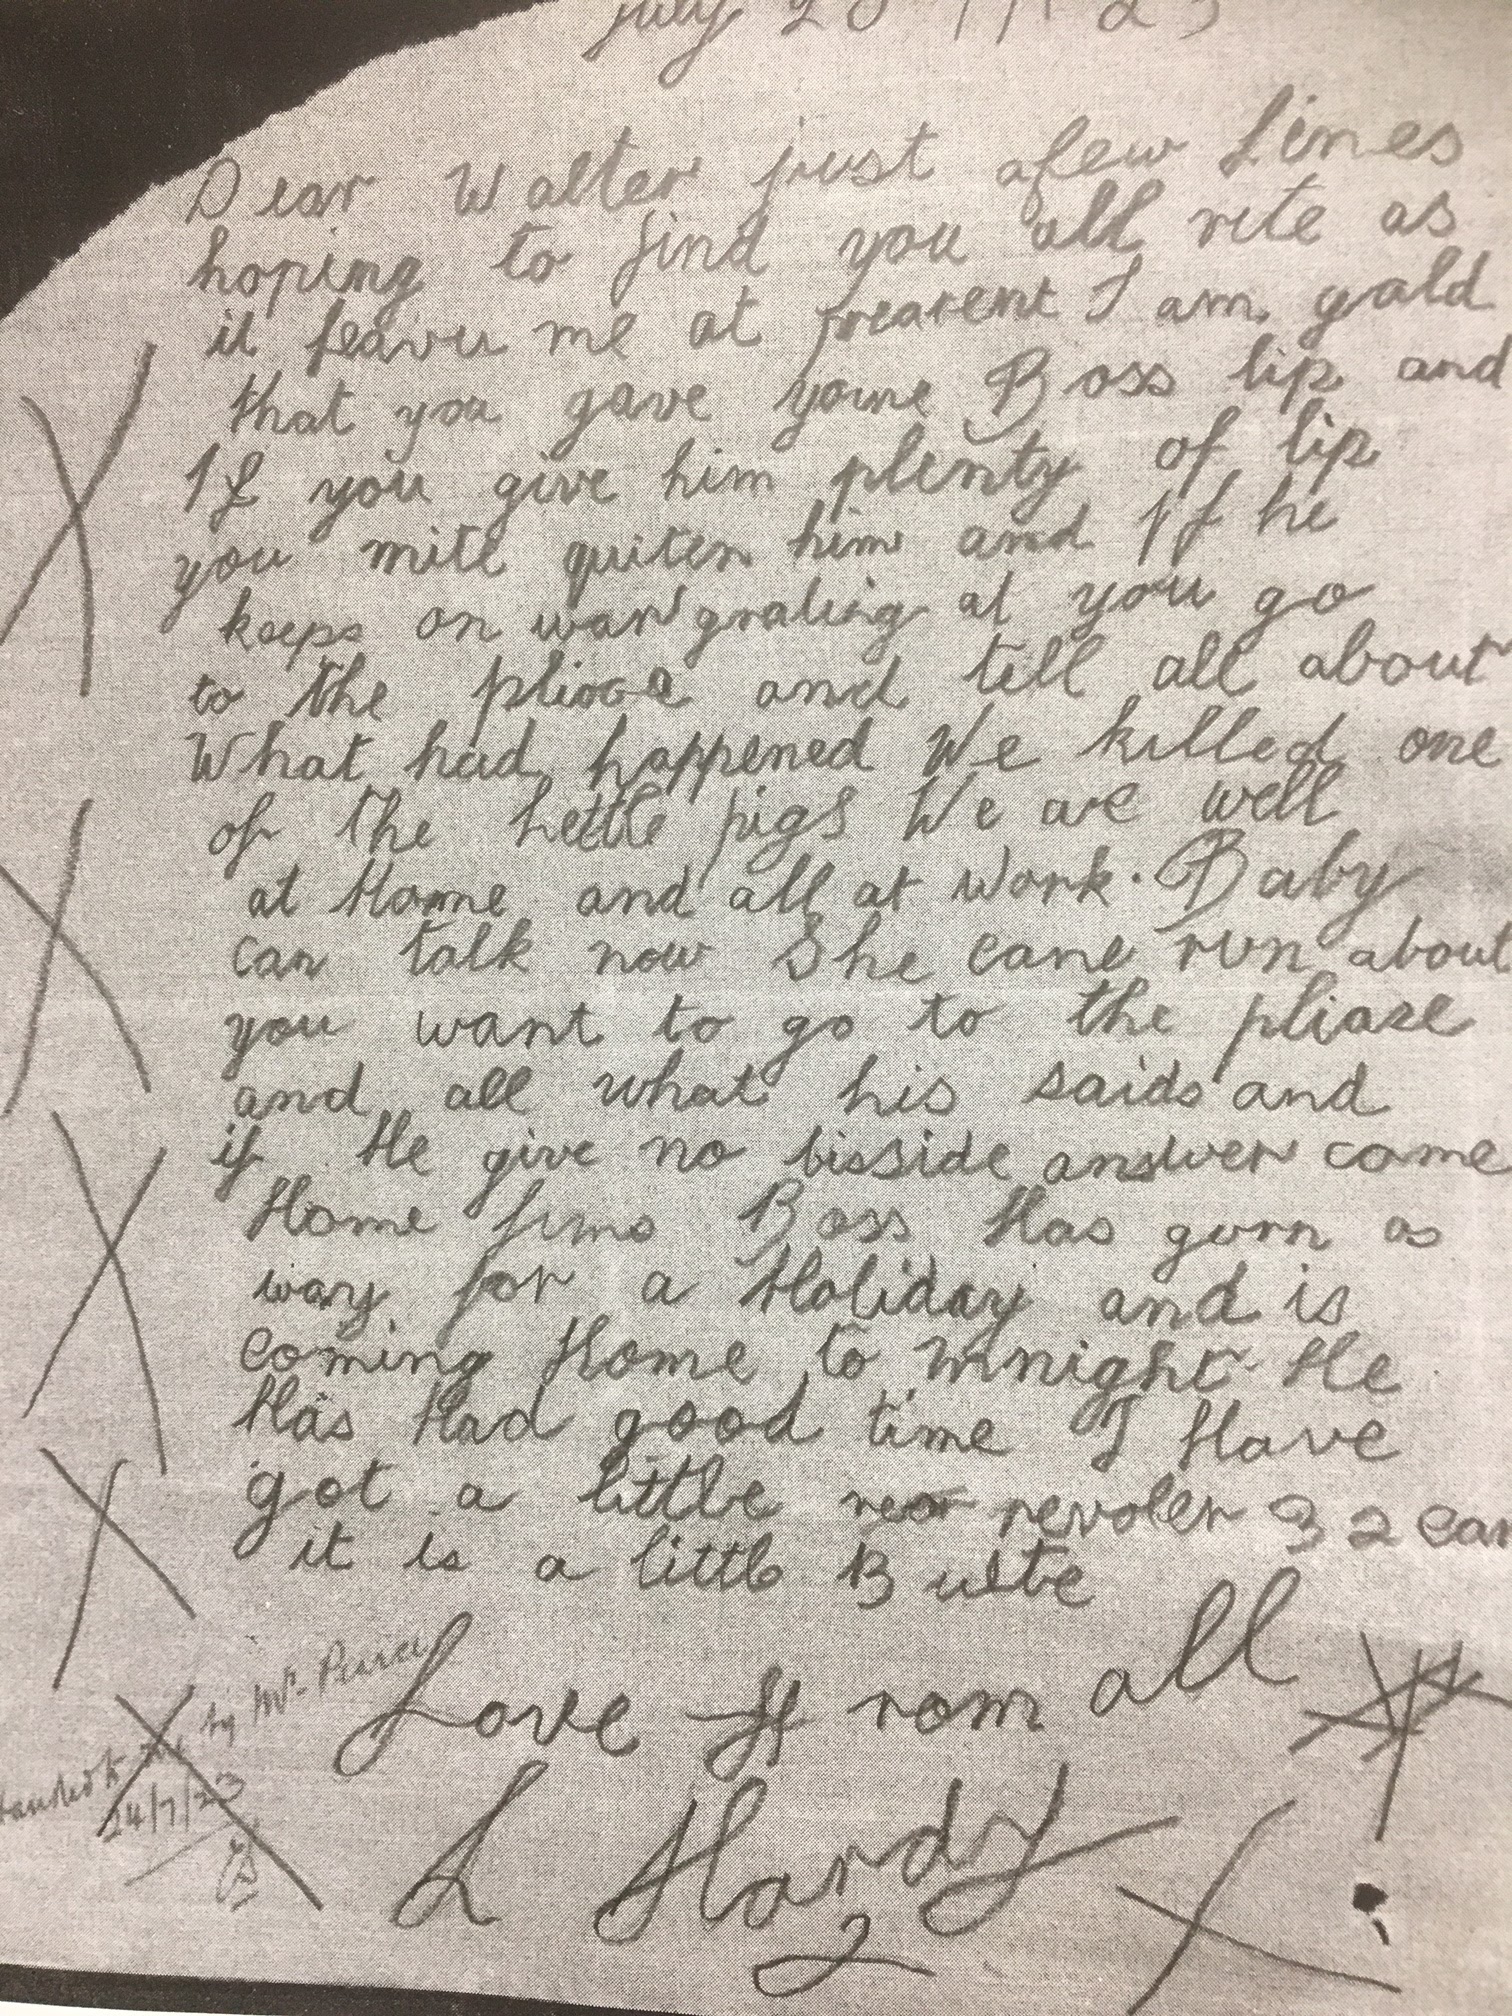 july 20 1923
Dear Walter just afew Lines
hoping to find you all rite as
it leavu me at prearent I am gald
that you gave youre Boss lip and
If you give him plenty of lip
you mite quiten him and If he
keeps on wan'grating at you go
to the plioce and tell all about
What had happened We killed one
of the Lettle pigs We are well
at Home and all at work. Baby
can talk now She cane run about
you want to go to the pliaze
and all what his saids and
if He give no bisside answer come
Home Jims Boss Has gorn as
way for a Holiday and is
coming Home to mnight He
Has Had good time I Have
got a little revoler 32 car
it is a little Bulte
Love From all
L Hardy
2
Handed to me by Mr. Purcell
24/7/23